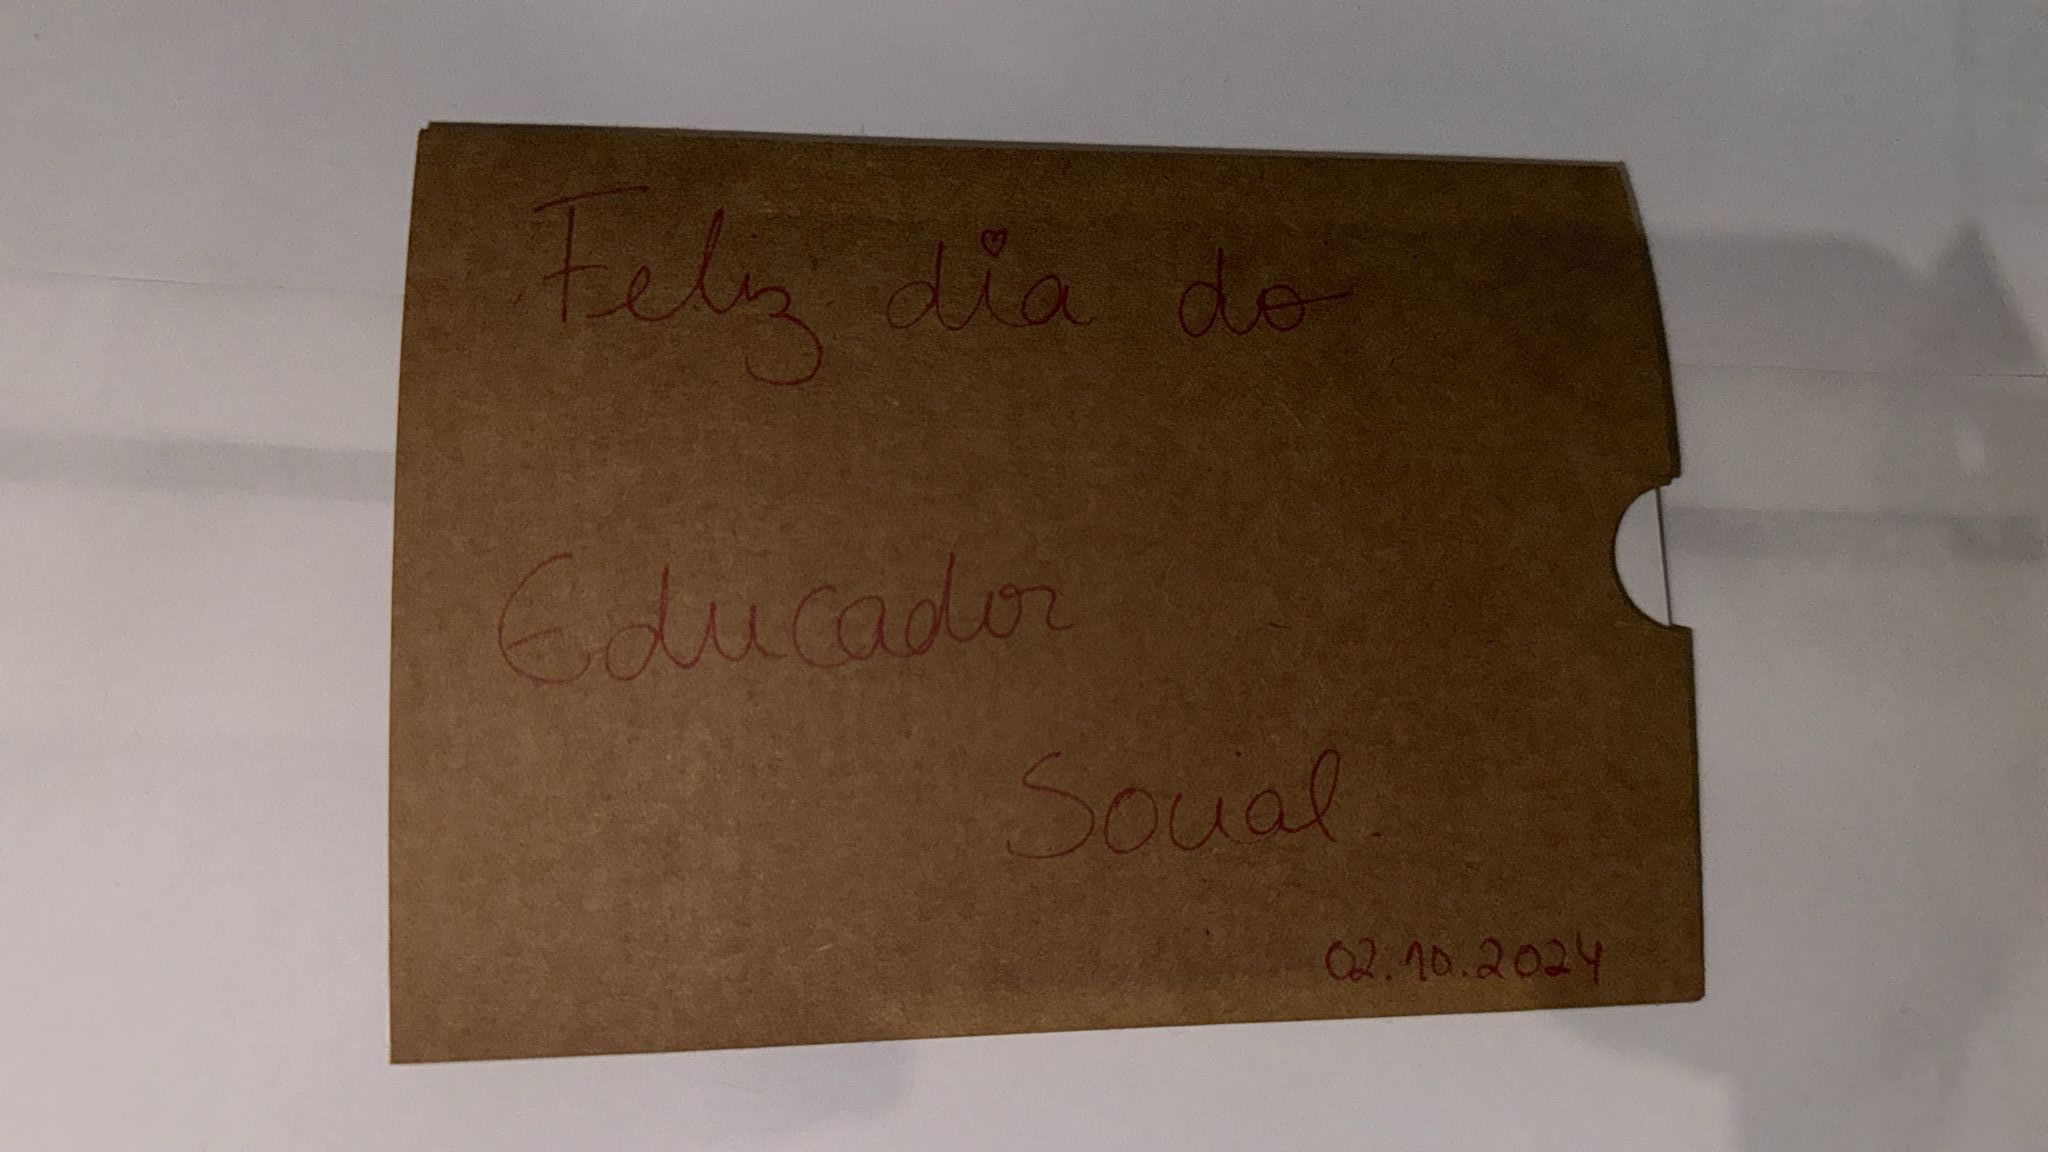 Feliz dia do
Educador
Social
02.10.2024